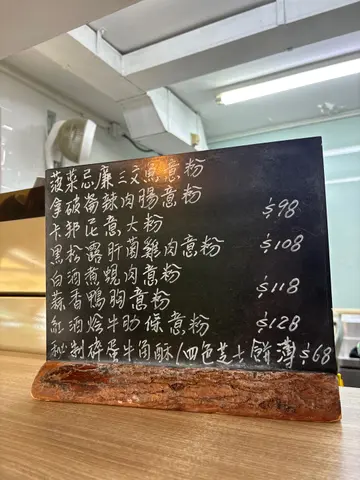 菠菜忌廉三文魚意粉
拿破崙辣肉腸意粉 $98
卡邦尼意大粉
黑松露肝菌雞肉意粉 $108
白酒煮蜆肉意粉
蒜香鴨胸意粉 $118
紅酒燴牛肋條意粉 $128
秘制碎蛋牛角酥/四色芝士餅薄$68